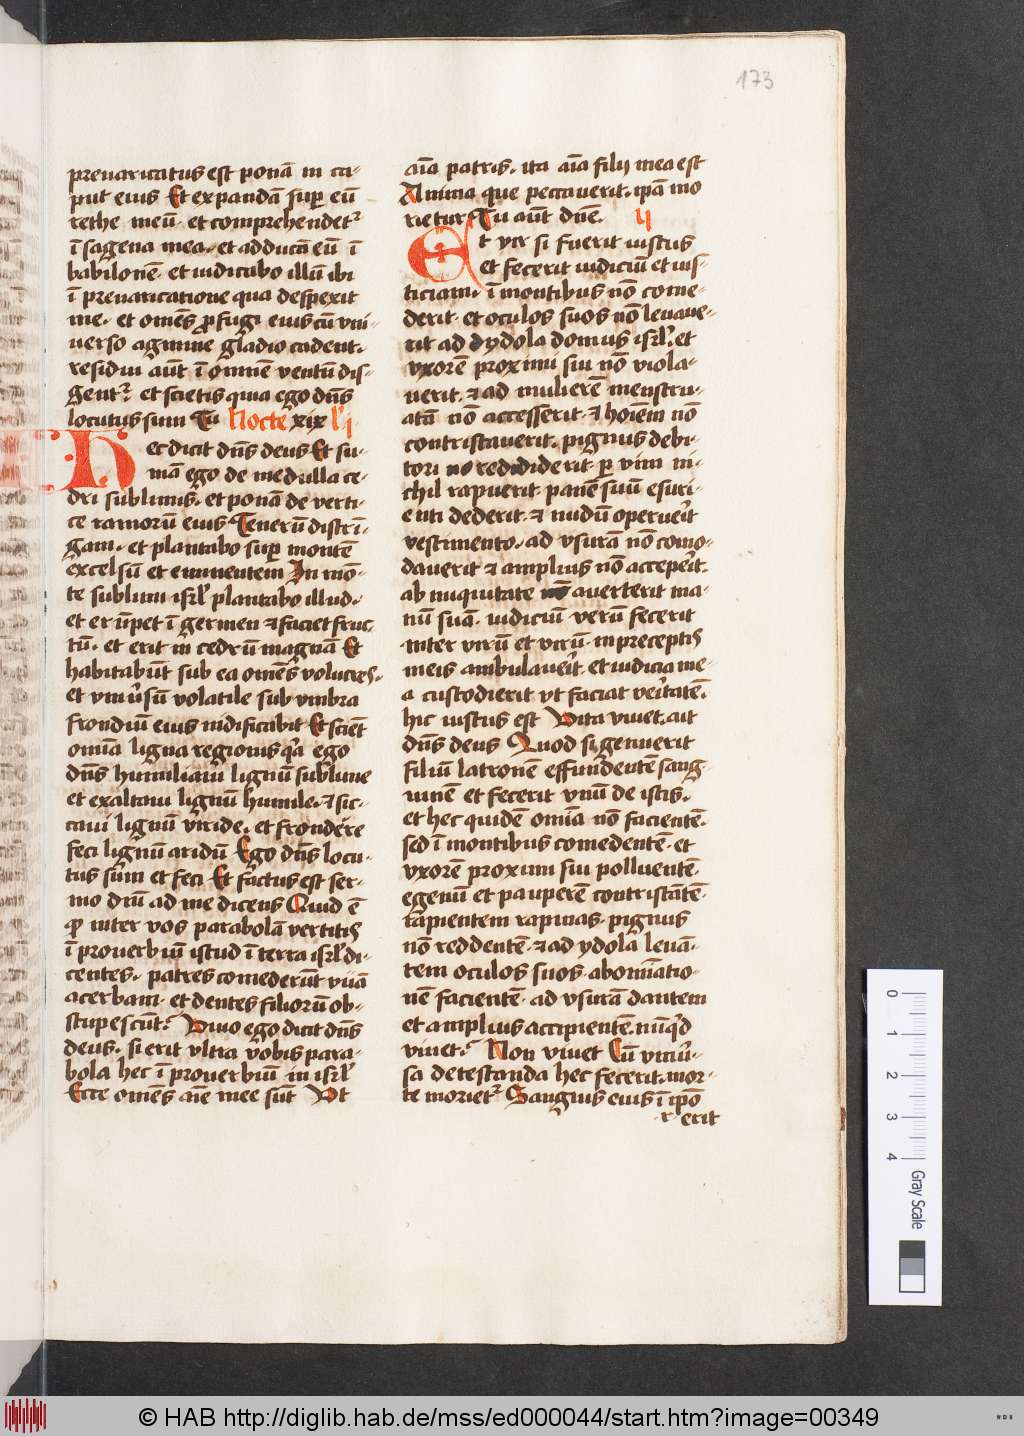 173
preuaricatus est ponā in ca-
put eius Et expandā suꝑ eū
rethe meū · et comprehendetᷣ
ī sagena mea · et adducā eū ī
babilonē · et iudicabo illū ibi
ī preuaricatione qua despexit
me · et omēs ꝓfugi eius cū vni-
uerso agmine gladio cadent ·
residui aūt ī omnē ventū dis-
ꝑgentᷣ et scietis quia ego dn̄s
locutus sum Tu Nocte xix l' i
Hec dicit dn̄s deus Et su-
mā ego de medulla ce-
dri sublimis · et ponā de verti-
ce ramorū eius Tenerū distrī-
gam · et plantabo suꝑ montē
excelsū et eminentem In mō-
te sublimi isrl' plantabo illud ·
et erūpet ī germen ⁊ faciet fruc
tū · et erit in cedrū magnā Et
habitabūt sub ea omēs volucres ·
et vniūsū volatile sub vmbra
frondiū eius nidificabit Et sciēt
omīa ligna regionis qa ego
dn̄s humiliaui lignū sublime
et exaltaui lignū humile · ⁊ sic-
caui lignū viride · et frondere
feci lignū aridū Ego dn̄s locu-
tus sum et feci Et factus est ser-
mo dn̄i ad me dicens Quid ē
ꝙ inter vos parabolā vertitis
ī prouerbiū istud ī terra isrl' di-
centes · patres comederūt vuā
acerbam · et dentes filiorū ob-
stupescūt · Viuo ego dicit dn̄s
deus · si erit vltra vobis para-
bola hec ī prouerbiū in isrl'
Ecce omēs aīe mee sūt Vt
aīa patris · ita aīa filij mea est
Anima que peccauerit · ipā mo
rietur Tu aūt dn̄e · ij
Et vir si fuerit iustus
et fecerit iudiciū et ius-
ticiam · ī montibus nō come-
derit · et oculos suos nō leuaue-
rit ad ydola domus isrl' · et
vxorē proximi sui nō viola-
uerit · ⁊ ad mulierē menstru-
atā nō accesserit · ⁊ hoīem nō
contristauerit · pignus debi-
tori redididerit · ꝑ vim ni-
chil rapuerit · panē suū esuri-
enti dederit · ⁊ nudū operuerit
vestimento · ad vsurā nō como-
dauerit ⁊ amplius nō acceperit ·
ab iniquitate auerterit ma-
nū suā · iudiciū verū fecerit
inter virū et virū · in preceptis
meis ambulauerit · et iudicia me-
a custodierit vt faciat veritatē ·
hic iustus est Vita viuet · ait
dn̄s deus Quod si genuerit
filiū latronē effundentē sang-
uinē et fecerit vnū de istis ·
et hec quidē omīa nō facientē ·
sed ī montibus comedentē · et
vxorē proximi sui polluentē ·
egenū et pauperē contristātē ·
rapientem rapinas · pignus
nō reddentē · ⁊ ad ydola leuā-
tem oculos suos · abomīatio-
nē facientē · ad vsurā dantem
et amplius accipientē · nūqd
viuet · Non viuet Cū vniū-
sa detestanda hec fecerit · mor-
te morietᷣ Sanguis eius ī ipō
erit
0 1 2 3 4
Gray Scale
© HAB http://diglib.hab.de/mss/ed000044/start.htm?image=00349